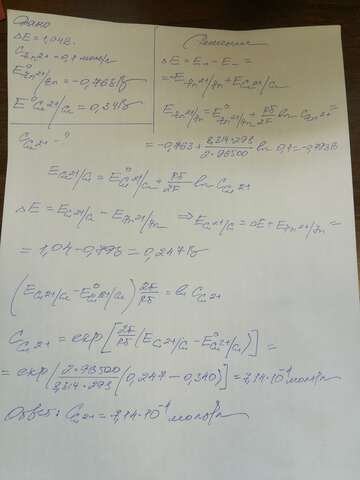 Дано
ΔE = 1,04В.
C Zn2+ = 0,1 моль/л
E° Zn2+/Zn = -0,763В
E° Cu2+/Cu = 0,34В
C Cu2+ - ?
Решение
ΔE = E+ - E- =
= -E Zn2+/Zn + E Cu2+/Cu
E Zn2+/Zn = E° Zn2+/Zn + RT/2F ln C Zn2+ =
= -0,763 + 8,314·293/2·96500 ln 0,1 = -0,793В
E Cu2+/Cu = E° Cu2+/Cu + RT/2F ln C Cu2+
ΔE = E Cu2+/Cu - E Zn2+/Zn ⇒ E Cu2+/Cu = ΔE + E Zn2+/Zn =
= 1,04 - 0,793 = 0,247В
(E Cu2+/Cu - E° Cu2+/Cu) 2F/RT = ln C Cu2+
C Cu2+ = exp[2F/RT (E Cu2+/Cu - E° Cu2+/Cu)] =
= exp(2·96500/8,314·293 (0,247 - 0,340)] = 7,14·10⁻⁴ моль/л
Ответ: C Cu2+ = 7,14·10⁻⁴ моль/л